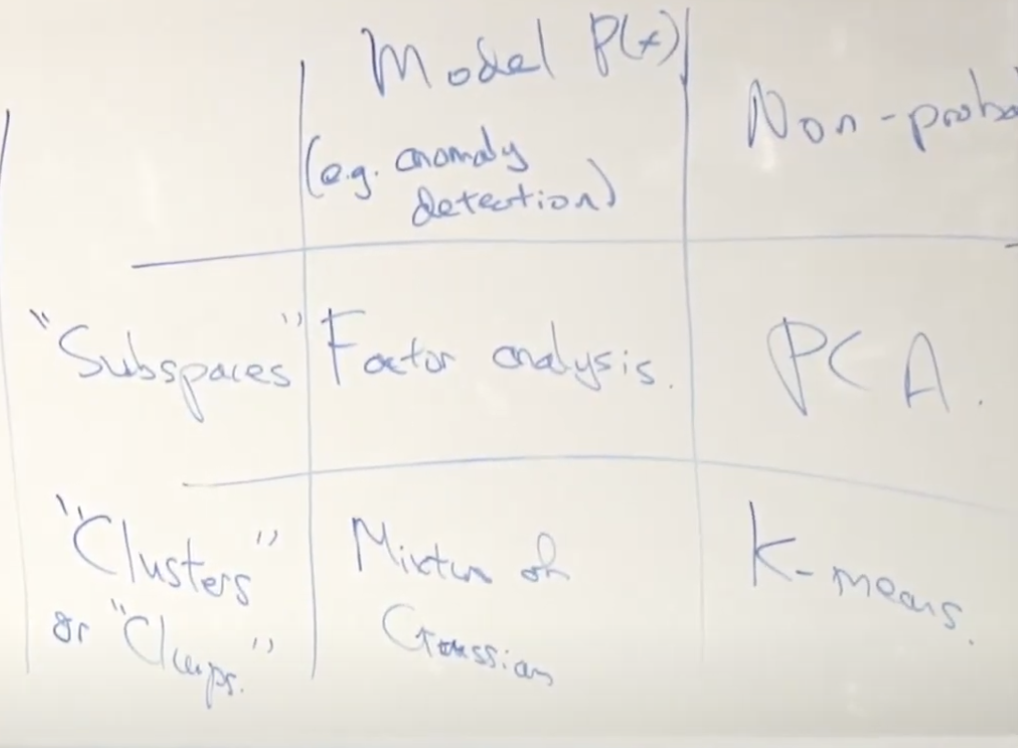 Model P(x)
(e.g. anomaly
detection)
Non-proba
"Subspaces"
Factor analysis.
PCA.
"Clusters"
or "Clumps."
Mixture of
Gaussian
K-means.